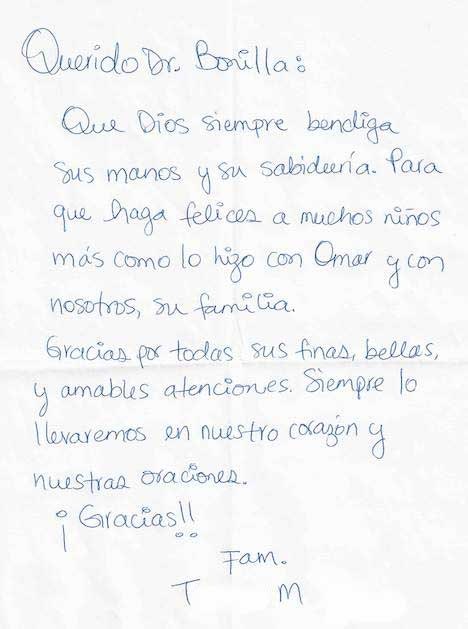 Querido Dr. Bonilla:
Que Dios siempre bendiga
sus manos y su sabiduería. Para
que haga felices a muchos niños
más como lo hizo con Omar y con
nosotros, su familia.
Gracias por todas sus finas, bellas,
y amables atenciones. Siempre lo
llevaremos en nuestro corazón y
nuestras oraciones.
¡Gracias!!
Fam.
T M